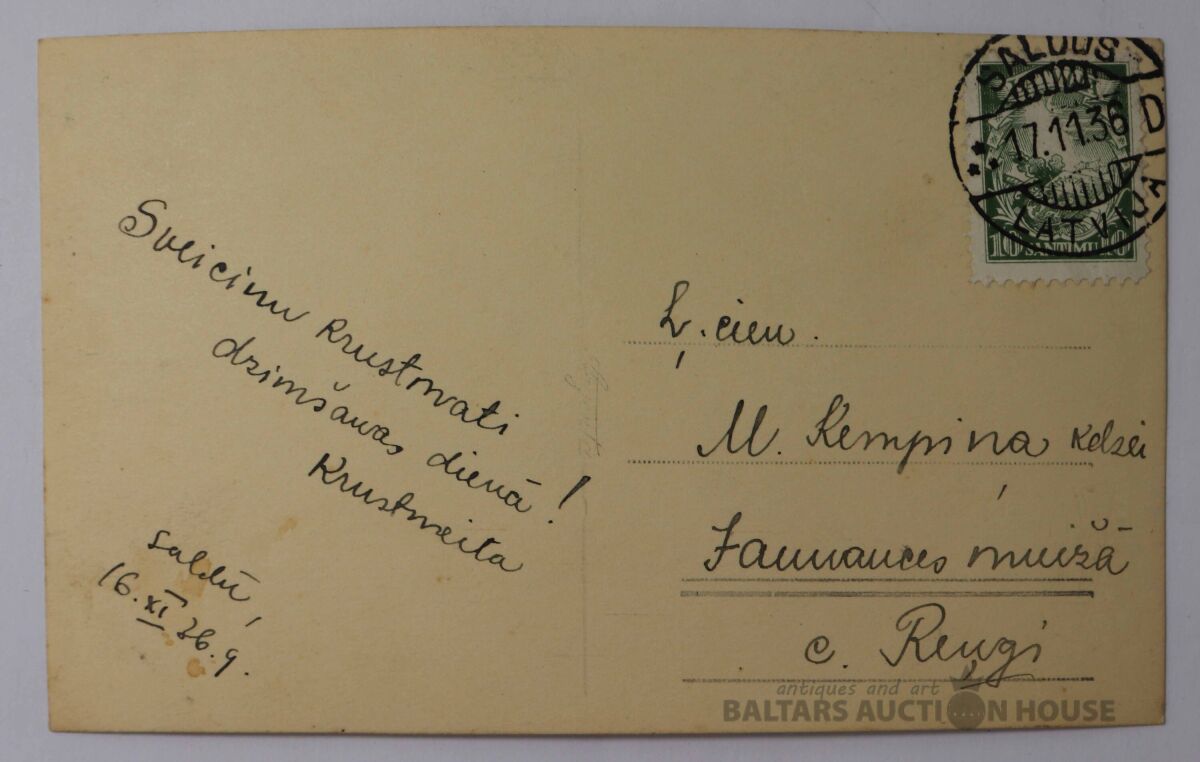 Sveicinu krustmati
dzimšanas dienā!
Krustmeita
Saldū,
16. XI 36. g.
SALDUS
17.11.36
LATVIJA
10 SANTIMU 10
Ļ. cien.
M. Ķempiņa kdzei
Jaunauces muižā
c. Reņģi
antiques and art
BALTARS AUCTION HOUSE